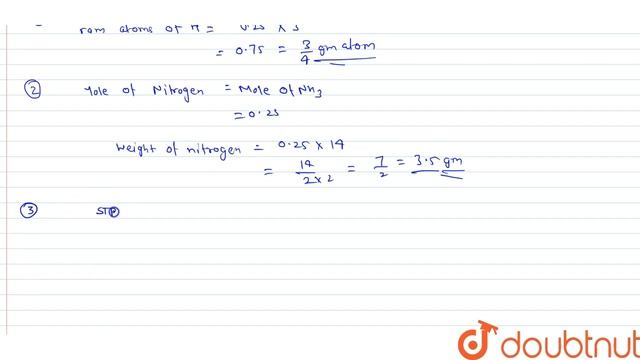 ram atoms of H = 0.25 × 3
= 0.75 = 3/4 gm atom
② Mole of Nitrogen = Mole of NH3
= 0.25
Weight of nitrogen = 0.25 × 14
= 14/2×2 = 7/2 = 3.5 gm
③ STP
doubtnut